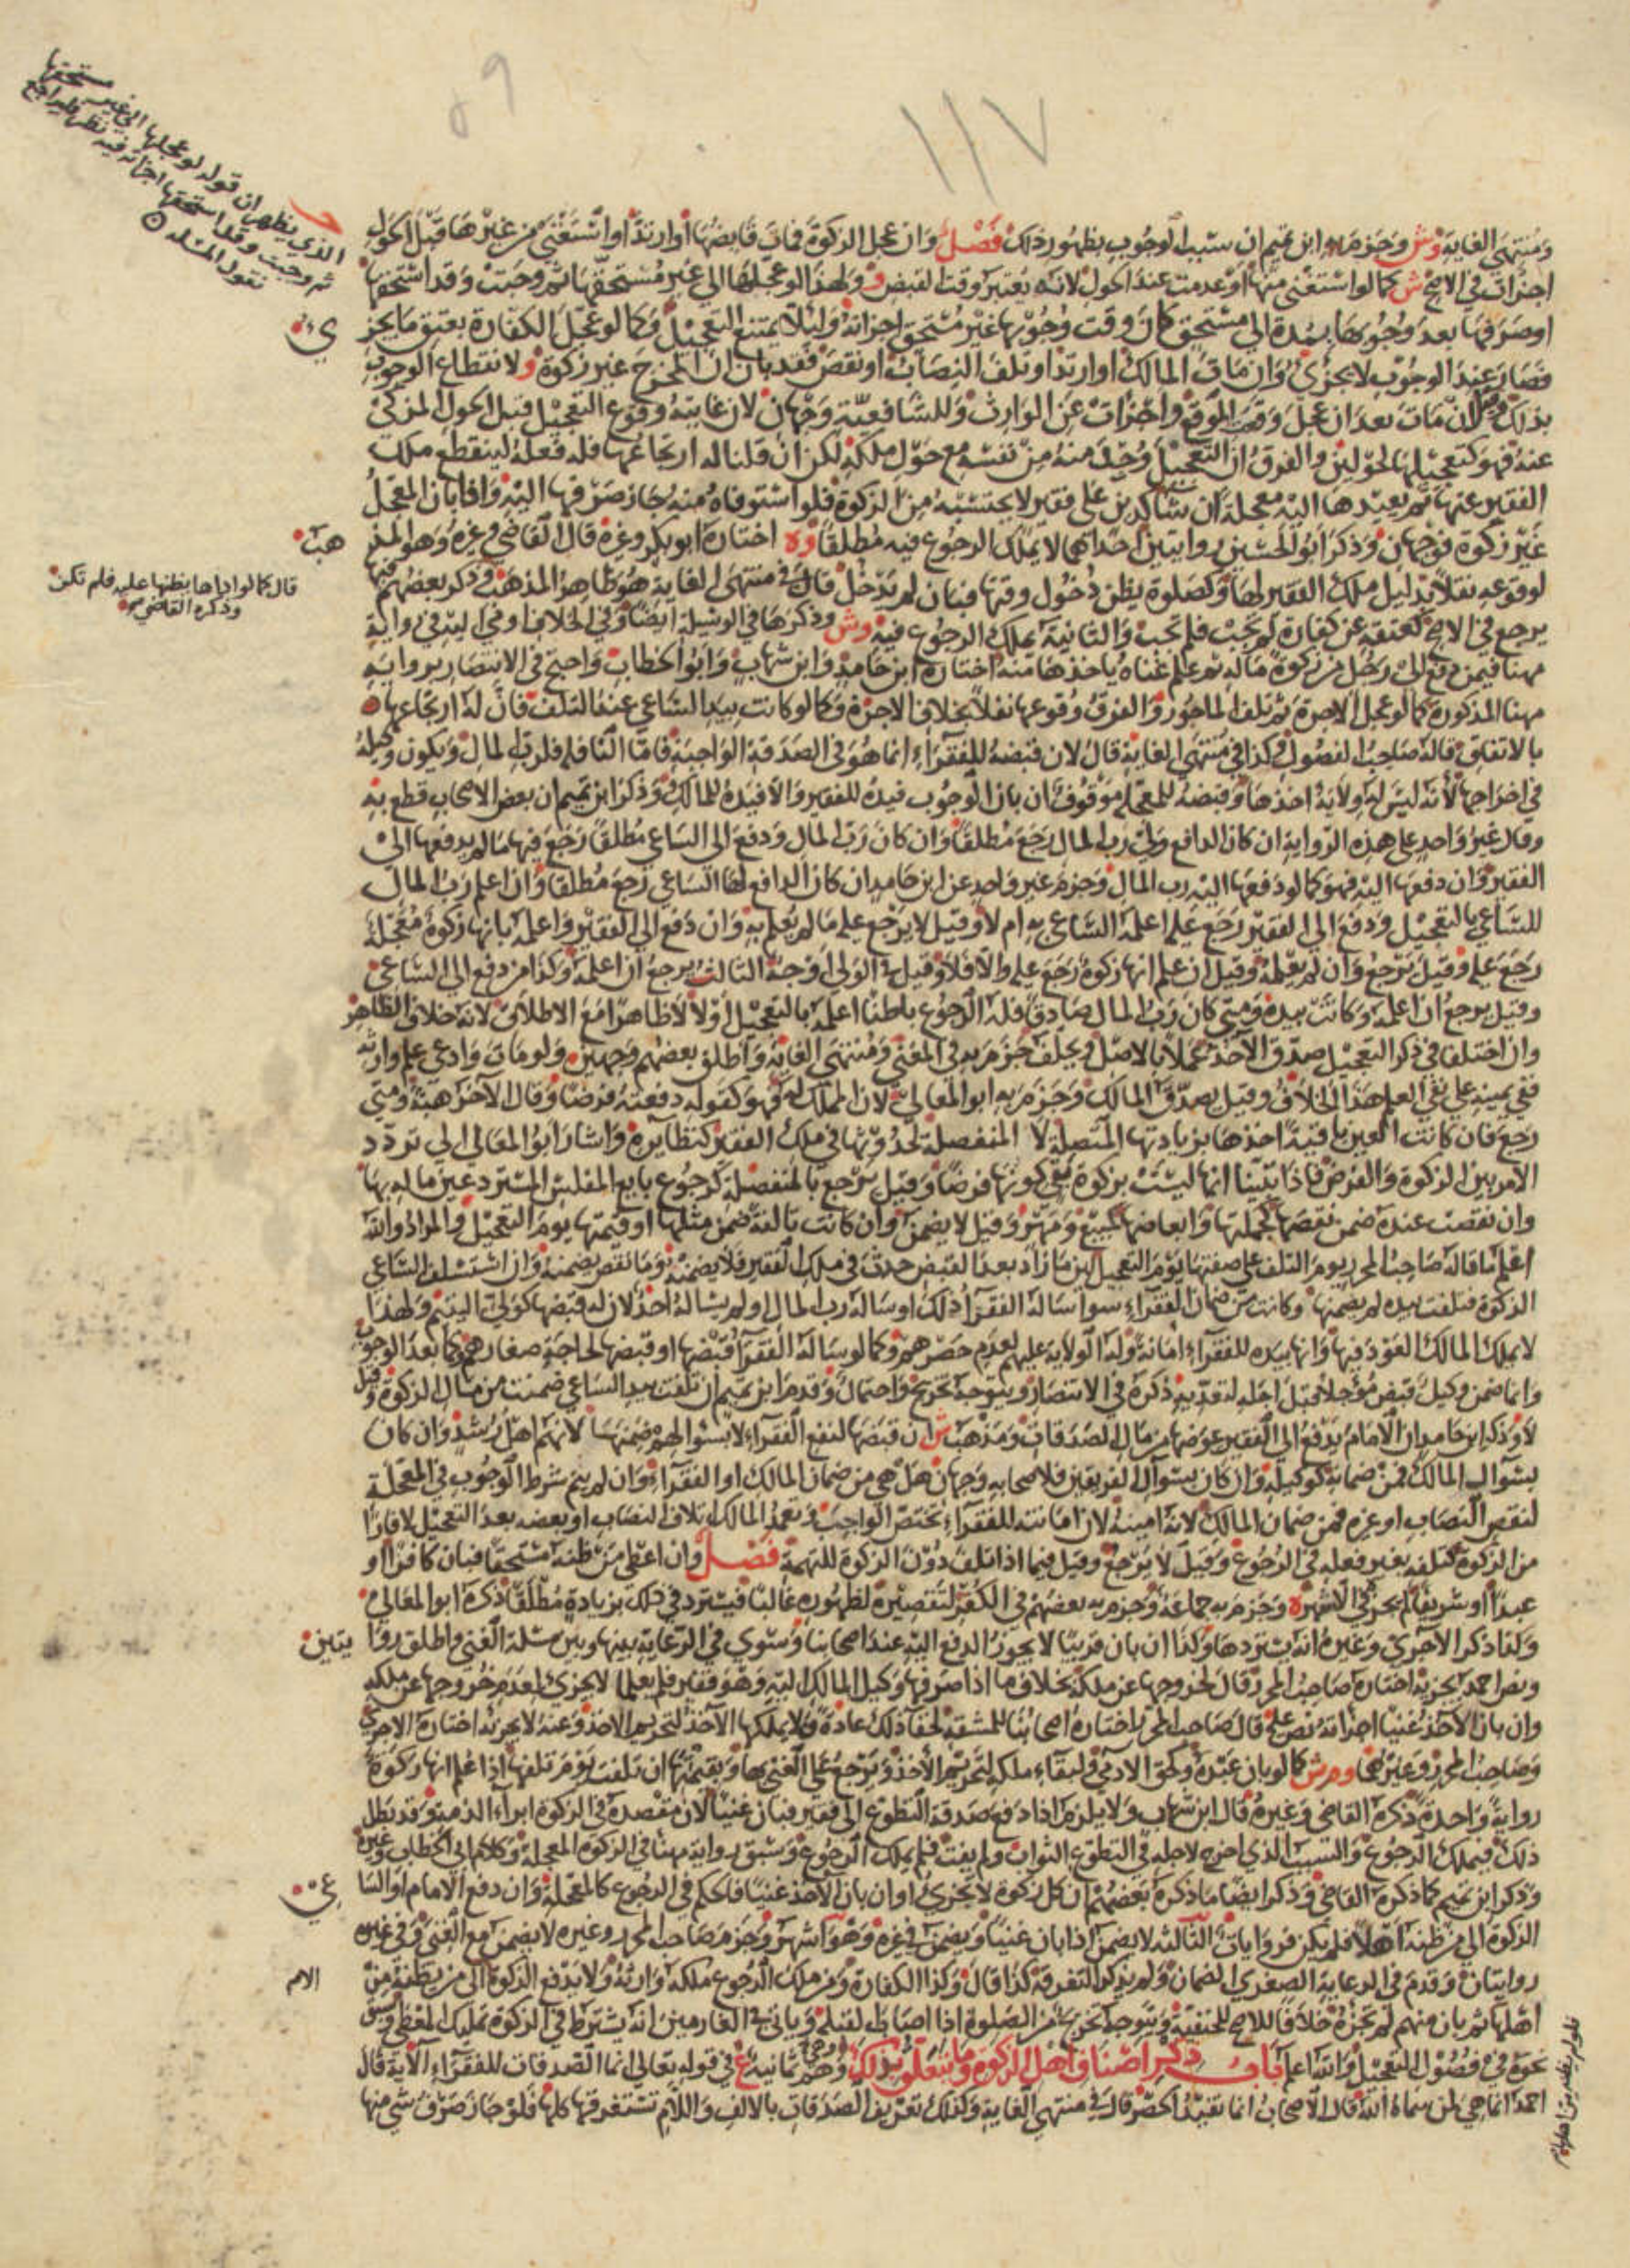 ومنتهى الغاية وش وجزم به ابن تميم ان سبب الوجوب بظهور ذلك فصل وان عجل الزكوة فمات قابضها او ارتد او استغنى من غيرها قبل الحول
اجزأت في الاصح ش كما لو استغنى منها او عدمت عند الحول لانه يعتبر وقت القبض و ولهذا لو عجلها الى غير مستحقها ثم وجبت وقد استحقها
او صرفها بعد وجوبها بمدة الى مستحق كان وقت وجوبها غير مستحق اجزأته ولئلا يمتنع التعجيل وكما لو عجل الكفارة بعتق ما يجزئ
فصار عند الوجوب لا يجزئ وان مات المالك او ارتد او تلف النصاب او نقص فقد بان ان المخرج غير زكوة و لانقطاع الوجوب
بذلك وقيل ان مات بعد ان عجل وقعت الموقع واجزأت عن الوارث وللشافعية وجهان لان غايته وقوع التعجيل قبل الحول المزكى
عنه فهو كتعجيلها لحولين والفرق ان التعجيل وجد منه من نفسه مع حول ملكه لكن ان قلنا له ارتجاعها فله فعله لينقطع ملك
الفقير عنها ثم يعيدها اليه معجلة ان شاء كدين على فقير لا يحتسبه من الزكوة فلو استوفاه منه جاز صرفها اليه واذا بان المعجل
غير زكوة فوجهان وذكر ابو الحسين روايتين احداهما لا يملك الرجوع فيه مطلقا وه اختاره ابو بكر وغيره قال القاضي وغيره وهو المذهب
لوقوعه نفلا بدليل ملك الفقير لها وكصلوة يظن دخول وقتها فبان لم يدخل قال في منتهى الغاية هو ظاهر المذهب وذكر بعضهم فيها
يرجع في الاصح كعتقه عن كفارة لم تجب فلم تجب والثانية يملك الرجوع فيه وش وذكرها في الوسيلة ايضا وفي الخلاف اومى اليه في رواية
مهنا فيمن دفع الى رجل من زكوة ماله ثم علم غناه ياخذها منه اختاره ابن حامد وابن شهاب وابو الخطاب واحتج في الانتصار برواية
مهنا المذكورة كما لو عجل الاجرة ثم تلف الماجور والفرق وقوعها نفلا بخلاف الاجرة وكما لو كانت بيد الساعي عند التلف فان له ارتجاعها
بالاتفاق قاله صاحب الفصول وكذا في منتهى الغاية قال لان قبضه للفقراء انما هو في الصدقة الواجبة فاما النافلة فلرب المال ويكون وكيله
في اخراجها لانه ليس له ولاية اخذها وقبضه للمعجلة موقوف ان بان الوجوب فيده للفقير والا فيده للمالك وذكر ابن تميم ان بعض الاصحاب قطع به
وقال غير واحد على هذه الرواية ان كان الدافع ولي رب المال رجع مطلقا وان كان رب المال ودفع الى الساعي مطلقا رجع فيها ما لم يدفعها الى
الفقير وان دفعها اليه فهو كما لو دفعها اليه رب المال وجزم غير واحد عن ابن حامد ان كان الدافع لها الساعي رجع مطلقا وان اعلم رب المال
للساعي بالتعجيل ودفع الى الفقير رجع عليه اعلمه الساعي به ام لا وقيل لا يرجع عليه ما لم يعلم به وان دفع الى الفقير واعلمه بانها زكوة معجلة
رجع عليه وقيل يرجع وان لم يعلمه وقيل ان علم انها زكوة رجع عليه والا فلا وقيل في الولي اوجه الثالث يرجع ان اعلمه وكذا من دفع الى الساعي
وقيل يرجع ان اعلمه وكانت بيده ومتى كان رب المال صادقا فله الرجوع باطنا اعلمه بالتعجيل او لا لا ظاهرا مع الاطلاق لانه خلاف الظاهر
وان اختلفا في ذكر التعجيل صدق الآخذ عملا بالاصل ويحلف جزم به في المغني ومنتهى الغاية واطلق بعضهم وجهين ولو مات وادعى علم وارثه
ففي يمينه على نفي العلم هذا الخلاف وقيل يصدق المالك وجزم به ابو المعالي لان المملك له فهو كقوله دفعته قرضا وقال الآخر هبة ومتى
رجع فان كانت العين باقية اخذها بزيادتها المتصلة لا المنفصلة لحدوثها في ملك الفقير كنظايره واشار ابو المعالي الى تردد
الامر بين الزكوة والقرض فاذا تبينا انها ليست بزكوة بقي كونها قرضا وقيل يرجع بالمنفصلة كرجوع بايع المفلس المسترد عين ماله بها
وان نقصت عنده ضمن نقصها كجملتها وابعاضها كمبيع ومهر وقيل لا يضمن وان كانت تالفة ضمن مثلها او قيمتها يوم التعجيل والمراد والله
اعلم ما قاله صاحب المحرر يوم التلف على صفتها يوم التعجيل لان ما زاد بعد القبض حدث في ملك الفقير فلا يضمنه وما نقص يضمنه وان استسلف الساعي
الزكوة فتلفت بيده لم يضمنها وكانت من ضمان الفقراء سوا سأله الفقرا ذلك او سأله رب المال او لم يسأله احد لان له قبضها كولي اليتيم ولهذا
لا يملك المالك العود فيها وانها بيده للفقراء امانة وله الولاية عليهم لعدم حصرهم وكما لو سأله الفقرا قبضها او قبضها لحاجة صغارهم وكما بعد الوجوب
وانما ضمن وكيل قبض مؤجلا قبل اجله لتعديه ذكره في الانتصار ويتوجه تخريج واحتمال وقدم ابن تميم ان تلفت بيد الساعي ضمنت من مال الزكوة وقيل
لا وذكر ابن حامد ان الامام يدفع الى الفقير عوضها من مال الصدقات ومذهب ش ان قبضها لنفع الفقراء لا بسؤالهم ضمنها لانهم اهل رشد وان كان
بسؤال المالك فمن ضمانه كوكيله وان كان بسؤال الفريقين فلاصحابه وجهان هل هي من ضمان المالك او الفقراء وان لم يتم شرط الوجوب في المعجلة
لنقص النصاب او غيره فمن ضمان المالك لانه امينه لان امانته للفقراء تختص الواجب وتعمد المالك اتلاف النصاب او بعضه بعد التعجيل لا فارا
من الزكوة كتلفه بغير فعله في الرجوع وقيل لا يرجع وقيل فيما اذا تلف دون الزكوة للتهمة فصل وان اعطى من ظنه مستحقا فبان كافرا او
عبدا او شريفا لم يجز في الاشهر ه وجزم به جماعة وجزم به بعضهم في الكفر لتقصيره لظهوره غالبا فيسترد في ذلك بزيادة مطلقا ذكره ابو المعالي
وكذا ذكر الآجري وغيره انه يستردها وكذا ان بان قريبا لا يجوز الدفع اليه عند اصحابنا وسوى في الرعاية بينها وبين مسئلة الغني واطلق روا يتين
ونص احمد يجزيه اختاره صاحب المحرر قال لخروجها عن ملكه بخلاف ما اذا صرفها وكيل المالك اليه وهو فقير فلم يعلما لا يجزئ لعدم خروجها عن ملكه
وان بان الآخذ غنيا اجزأته نص عليه قال صاحب المحرر اختاره اصحابنا للمشقة لخفا ذلك عادة فلا يملكها الآخذ لتحريم الاخذ وعنه لا يجزئه اختاره الآجري
وصاحب المحرر وغيرهما وم ر ش كما لو بان عبده وكحق الآدمي ولبقاء ملكه لتحريم الاخذ ويرجع على الغني بها وبقيمتها ان تلفت يوم تلفها اذا علم انها زكوة
رواية واحدة ذكره القاضي وغيره قال ابن شهاب ولا يلزم اذا دفع صدقة التطوع الى فقير فبان غنيا لان مقصده في الزكوة ابراء الذمة وقد بطل
ذلك فيملك الرجوع والسبب الذي اخرج لاجله في التطوع الثواب ولم يفت فلم يملك الرجوع وسبق رواية مهنا في الزكوة المعجلة وكلام ابي الخطاب وغيره
وذكر ابن تميم كما ذكره القاضي وذكر ايضا ما ذكره بعضهم ان كل زكوة لا تجزئ او ان بان الآخذ غنيا فالحكم في الرجوع كالمعجلة وان دفع الامام او السا عي
الزكوة الى من ظنه اهلا فلم يكن فروايات الثالثة لا يضمن اذا بان غنيا ويضمن في غيره وهو اشهر وجزم صاحب المحرر وغيره لا يضمن مع الغنى وفي غيره
روايتان وقدم في الرعاية الصغرى الضمان ولم يذكر التفرقة كذا قال وكذا الكفارة ومن ملك الرجوع ملكه وارثه ولا يدفع الزكوة الى من يظنه من
اهلها ثم بان منهم لم تجزه خلافا للاصح للحنفية ويتوجه تخريج من الصلوة اذا اصاب القبلة ويأتي في الغارمين انه يشترط في الزكوة تمليك المعطى وسبق
نحوه في فصول التعجيل والله اعلم باب ذكر اصناف اهل الزكوة وما يتعلق بذلك وهم ثمانية ع في قوله تعالى انما الصدقات للفقراء الآية قال
احمد انما هي لمن سماه الله قال الاصحاب انما تفيد الحصر قال في منتهى الغاية وكذلك تعريف الصدقات بالالف واللام تستغرقها كلها فلو جاز صرف شي منها
الذي يظهر ان قوله لو عجلها الى غير مستحقها
ثم وجبت وقد استحقها اجزأته فيه نظر
هب
قال كما لو اداها يظنها عليه فلم تكن
وذكره القاضي
الام